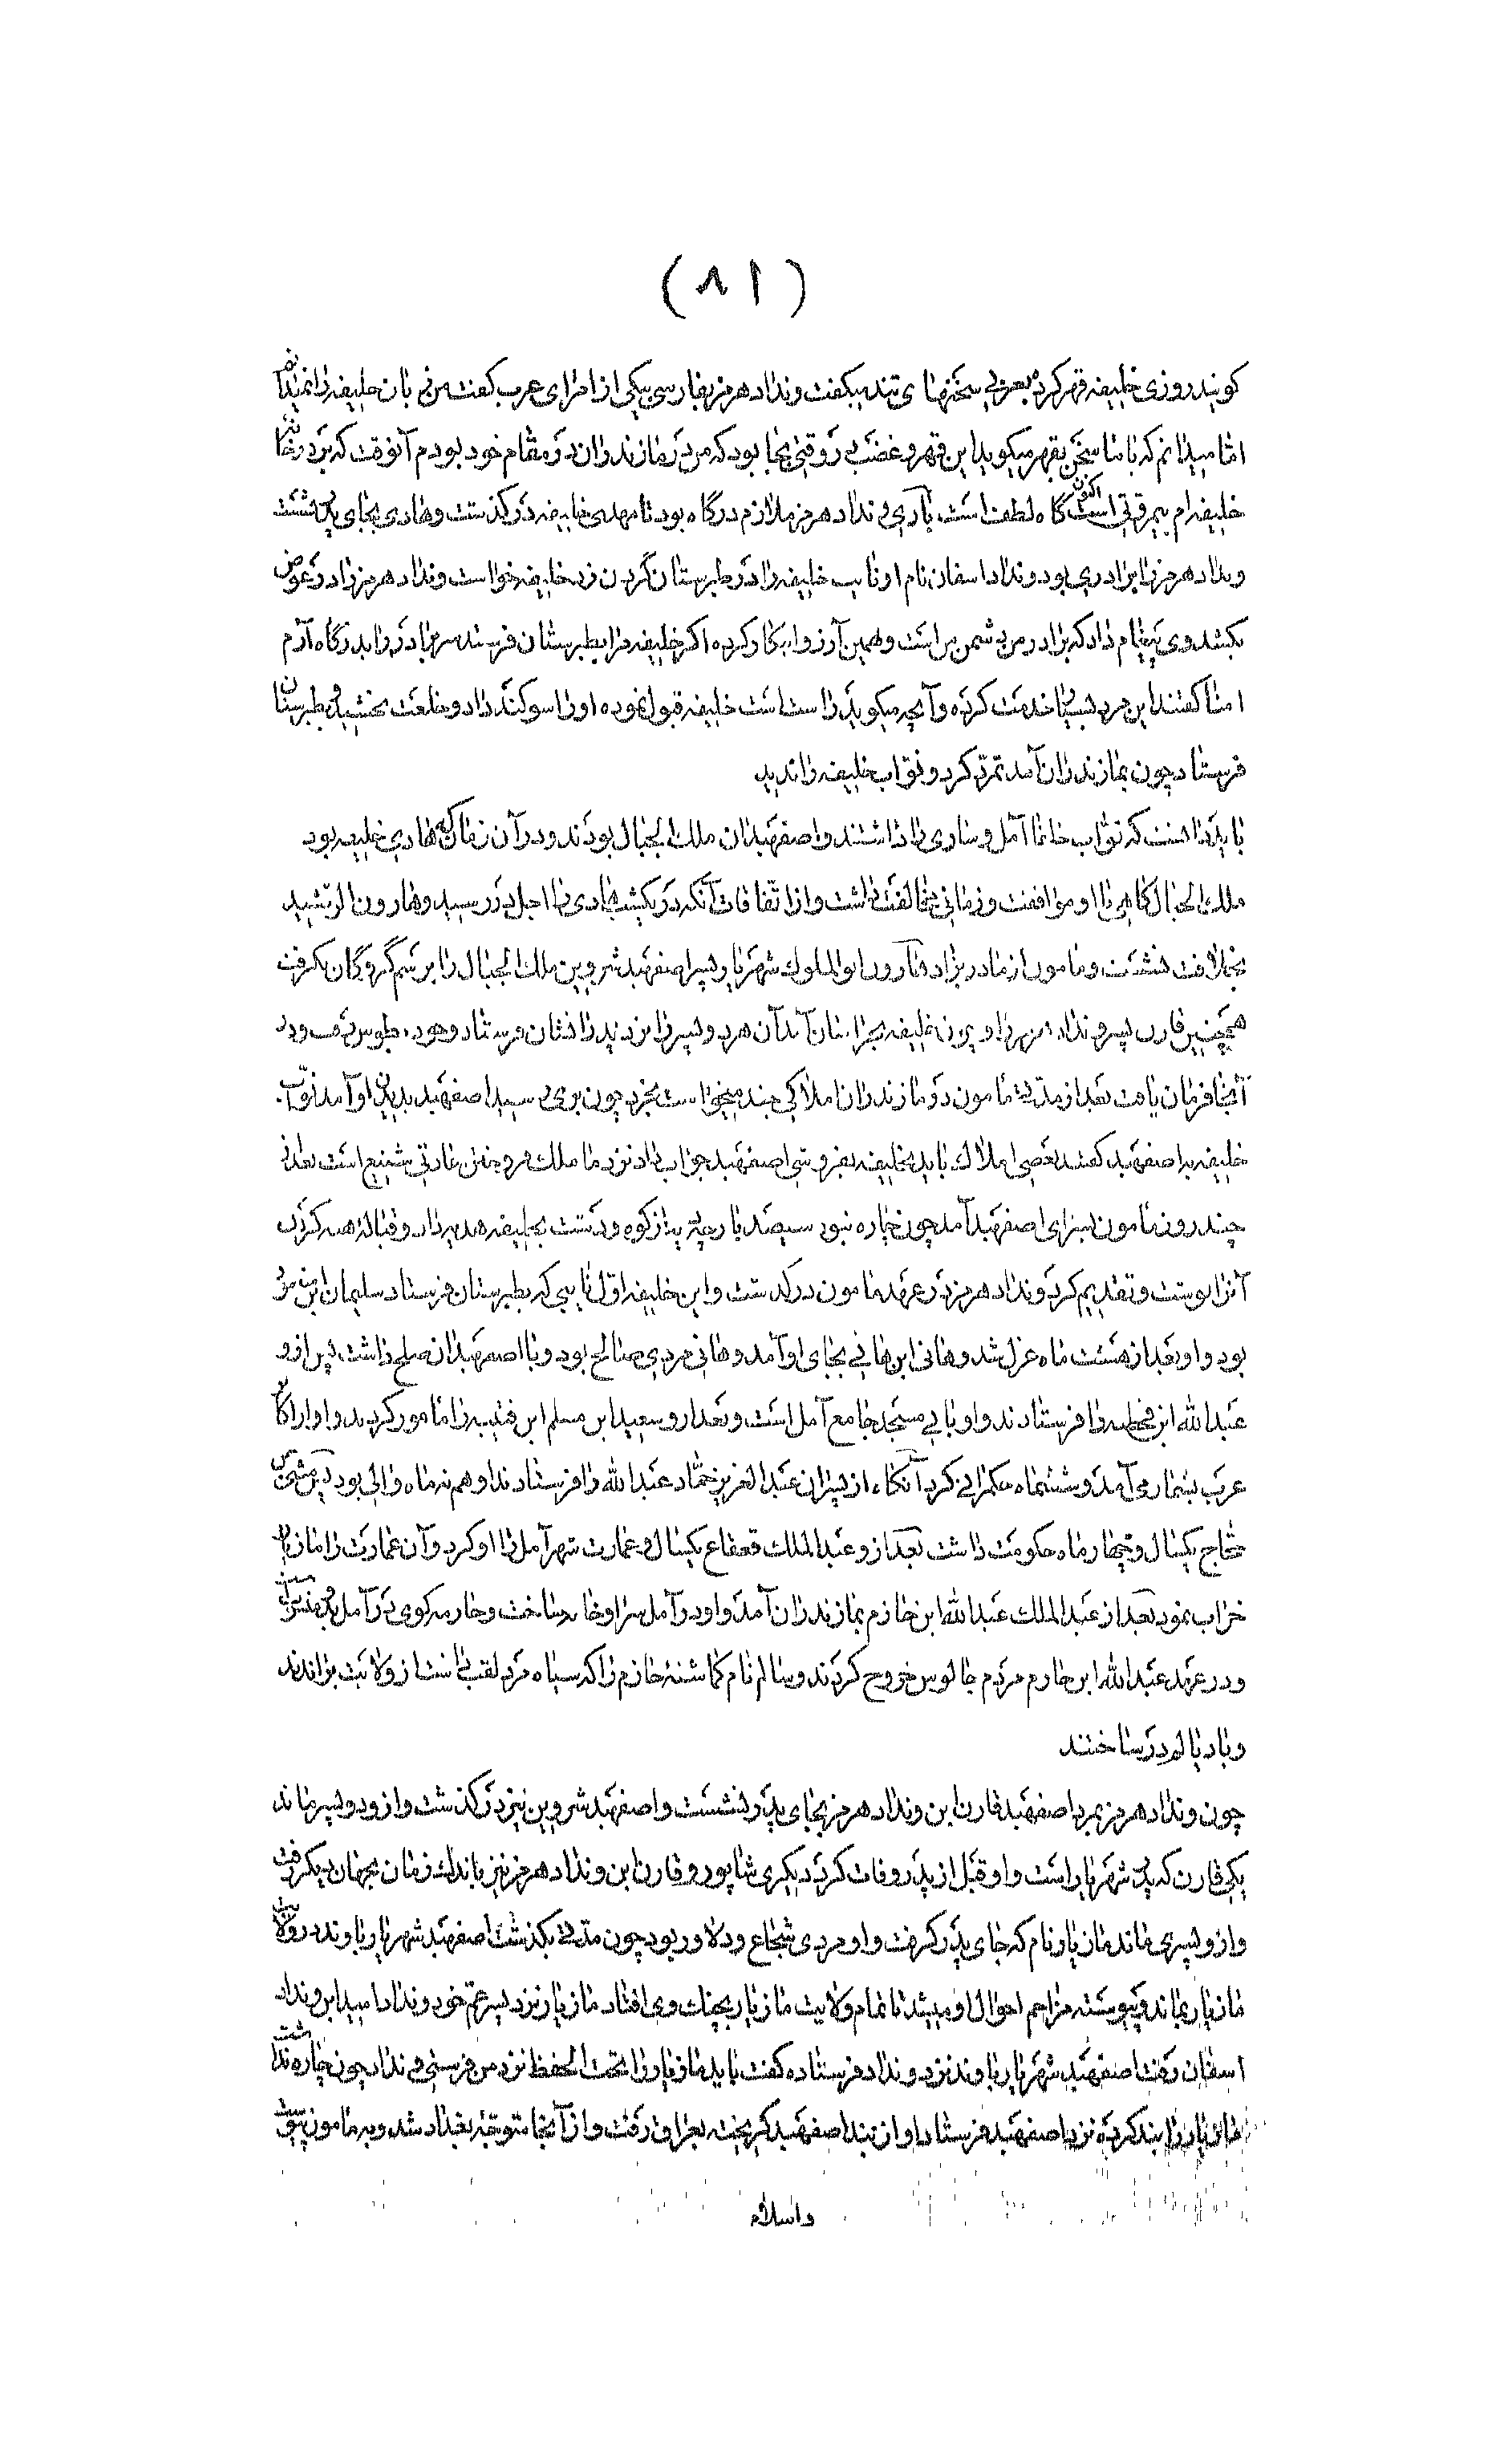 (۸۱)
کویند روزی خلیفه قهر کرده بعربی سخنهای تند میکفت ونداد هرمز بفارسی بیکی از امرای عرب کفت من زبان خلیفه را نمیدانم
اما میدانم که با ما سخن بقهر میکوید این قهر و غضب در وقتی بجا بود که من در مازندران در مقام خود بودم آنوقت که بر در خانه
خلیفه ام بیمروتی است اکنون کاه لطف است باری ونداد هرمز ملازم درکاه بود تا مهدی خلیفه درکذشت و هادی بجای پدر نشست
ونداد هرمز را برادری بود ونداد اسفان نام او نایب خلیفه را در طبرستان کردن زد خلیفه خواست ونداد هرمز را در عوض
بکشد وی پیغام داد که برادر من دشمن من است و همین آرزو را بکار کرده اکر خلیفه مرا بطبرستان فرستد سر برادرم را بدرکاه آرم
امنا کفتند این مرد بسی خدمت کرده و آنچه میکوید راست است خلیفه قبول نموده او را سوکند داد و خلعت بخشید و بطبرستان
فرستاد چون بمازندران آمد تمرد کرد و نواب خلیفه را ندید
باید دانست که نواب خلفا آمل و ساری را داشتند و اصفهبدان ملک الجبال بودند و در آن زمان که هادی خلیفه بود
ملک الجبال کاهی با او موافقت و زمانی مخالفت داشت و از اتفاقات آنکه در یکشب هادی را اجل در رسید و هارون الرشید
بخلافت نشست و مامون از مادر بزاد هارون ابوالملوک شهریار پسر اصفهبد شروین ملک الجبال را برسم کروکان بکرفت
همچنین قارن پسر ونداد هرمز را و چون خلیفه بخراسان آمد آن هر دو پسر را نزد پدرانشان فرستاد و خود بطوس رفت و در
آنجا فرمان یافت بعد از مدتی مامون در مازندران املاکی چند میخواست بخرد چون بری رسید اصفهبد بدیدن او آمد نواب
خلیفه به اصفهبد کفتند بعضی املاک باید بخلیفه بفروشی اصفهبد جواب داد نزد ما ملک فروختن عادتی شنیع است بعد از
چند روز مامون بسرای اصفهبد آمد چون چاره نبود سیصد پارچه ده از کوه و دشت بخلیفه هدیه داد و قباله هبه کردن
آنرا نوشت و تقدیم کرد ونداد هرمز در عهد مامون درکذشت و این خلیفه اول نایبی که بطبرستان فرستاد سلیمان ابن
بود و او بعد از هشت ماه عزل شد و هانی ابن هانی بجای او آمد و هانی مردی صالح بود و با اصفهبدان صلح داشت پس از او
عبدالله ابن قحطبه را فرستادند و او بانی مسجد جامع آمل است و بعد از او سعید ابن مسلم ابن قتیبه را مامور کردند و او از اکابر
عرب بشمار می آمد و ششماه حکمرانی کرد آنکاه از پسران عبدالعزیز حماد عبدالله را فرستادند او هم نه ماه والی بود پس مثنی بن
حجاج یکسال و چهار ماه حکومت داشت بعد از او عبدالملک قعقاع یکسال و عمارت شهر آمل را او کرد و آن عمارت را مازیار
خراب نمود بعد از عبدالملک عبدالله ابن خازم بمازندران آمد و او در آمل سرا و خانه بساخت و خازمه کوی در آمل
و در عهد عبدالله ابن خازم مردم چالوس خروج کردند و سالم نام کماشته خازم را که سیاه مرد لقب داشت از ولایت براندند
و با دیالم در ساختند
چون ونداد هرمز بمرد اصفهبد قارن ابن ونداد هرمز بجای پدر بنشست و اصفهبد شروین نیز درکذشت و از و دو پسر ماند
یکی قارن که پدر شهریار است و او قبل از پدر وفات کرد دیکری شاپور و قارن ابن ونداد هرمز نیز باندک زمان بجهان دیکر رفت
و از و پسری ماند مازیار نام که جای پدر کرفت و او مردی شجاع و دلاور بود چون مدتی بکذشت اصفهبد شهریار باوند در ولایت
مازیار بماند و پیوسته مزاحم احوال او میشد تا تمام ولایت مازیار بچنک وی افتاد مازیار نزد پسر عم خود ونداد امید ابن ونداد
اسفان رفت اصفهبد شهریار باوند نزد ونداد فرستاده کفت باید مازیار را تحت الحفظ نزد من فرستی ونداد چون چاره نداشت
مازیار را بند کرده نزد اصفهبد فرستاد او از بند اصفهبد کریخته بعراق رفت و از آنجا متوجه بغداد شد و به مامون پیوست
والسلام